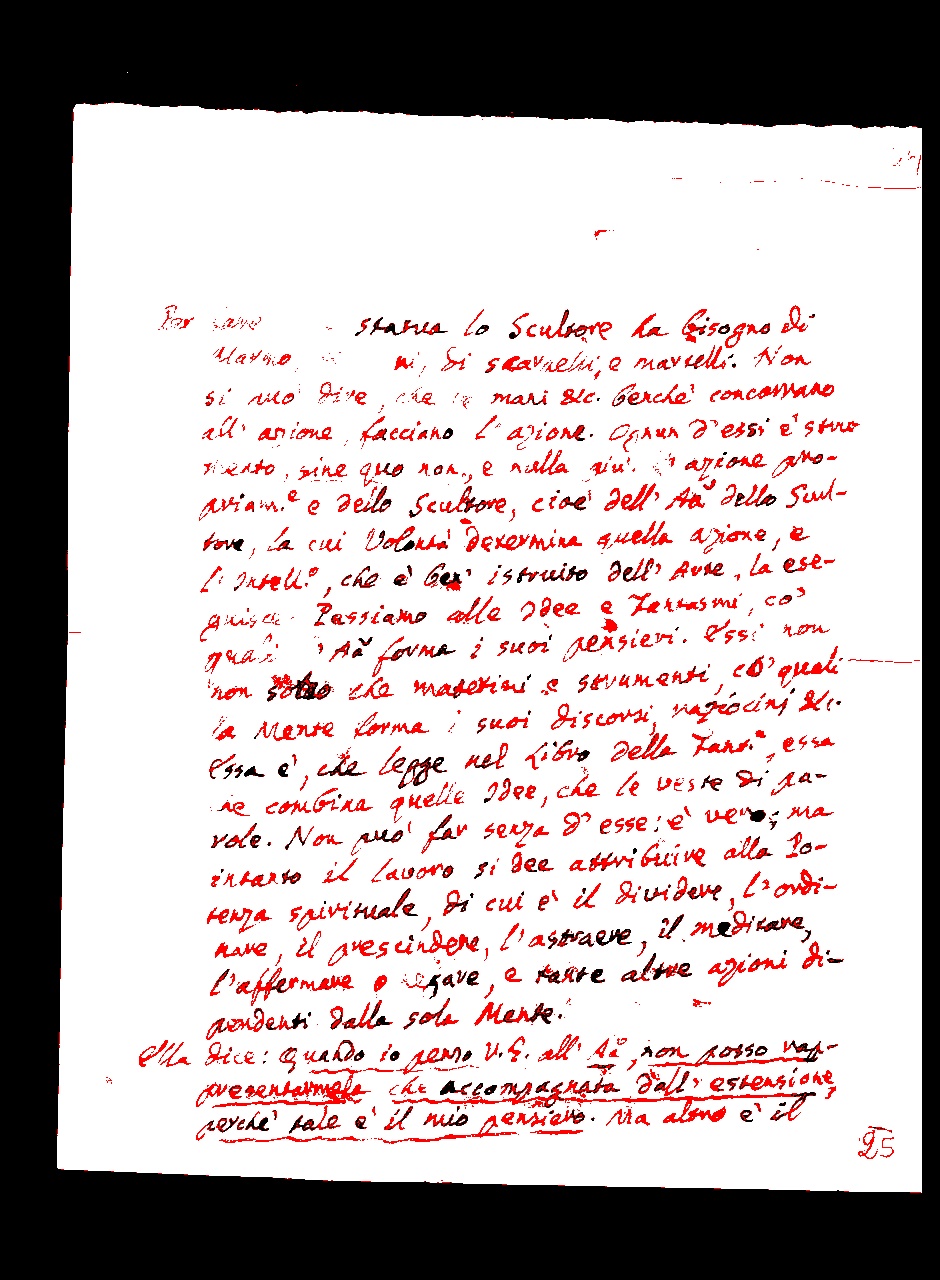 Per statua lo Scultore ha bisogno di
Marmo, di scarpelli, e martelli. Non
si può dire, che le mani &c. benchè concorrano
all' azione, facciano l'azione. Ognun d'essi è stru-
mento, sine quo non, e nulla più. L' azione pro-
priam.e è dello Scultore, cioè dell' Aã dello Scul-
tore, la cui Volontà determina quella azione, e
l'Intell.o, che è ben' istruito dell' Arte, la ese-
guisce. Passiamo alle Idee e Fantasmi, co'
quali l'Aã forma i suoi pensieri. Essi non
non che materiali e strumenti, co' quali
la Mente forma i suoi discorsi, raziocinj &c.
Essa è, che legge nel Libro della Fant.a, essa
ne combina quelle Idee, che le veste di pa-
role. Non può far senza d' esse: è vero; ma
intanto il lavoro si dee attribuire alla Po-
tenza spirituale, di cui è il dividere, l'ordi-
nare, il prescindere, l'astraere, il meditare,
l'affermare o negare, e tante altre azioni di-
pendenti dalla sola Mente.
Ella dice: Quando io penso V.G. all' Aã, non posso rap-
presentarmela che accompagnata dall' estensione,
perchè tale è il mio pensiero. Ma altro è il
25